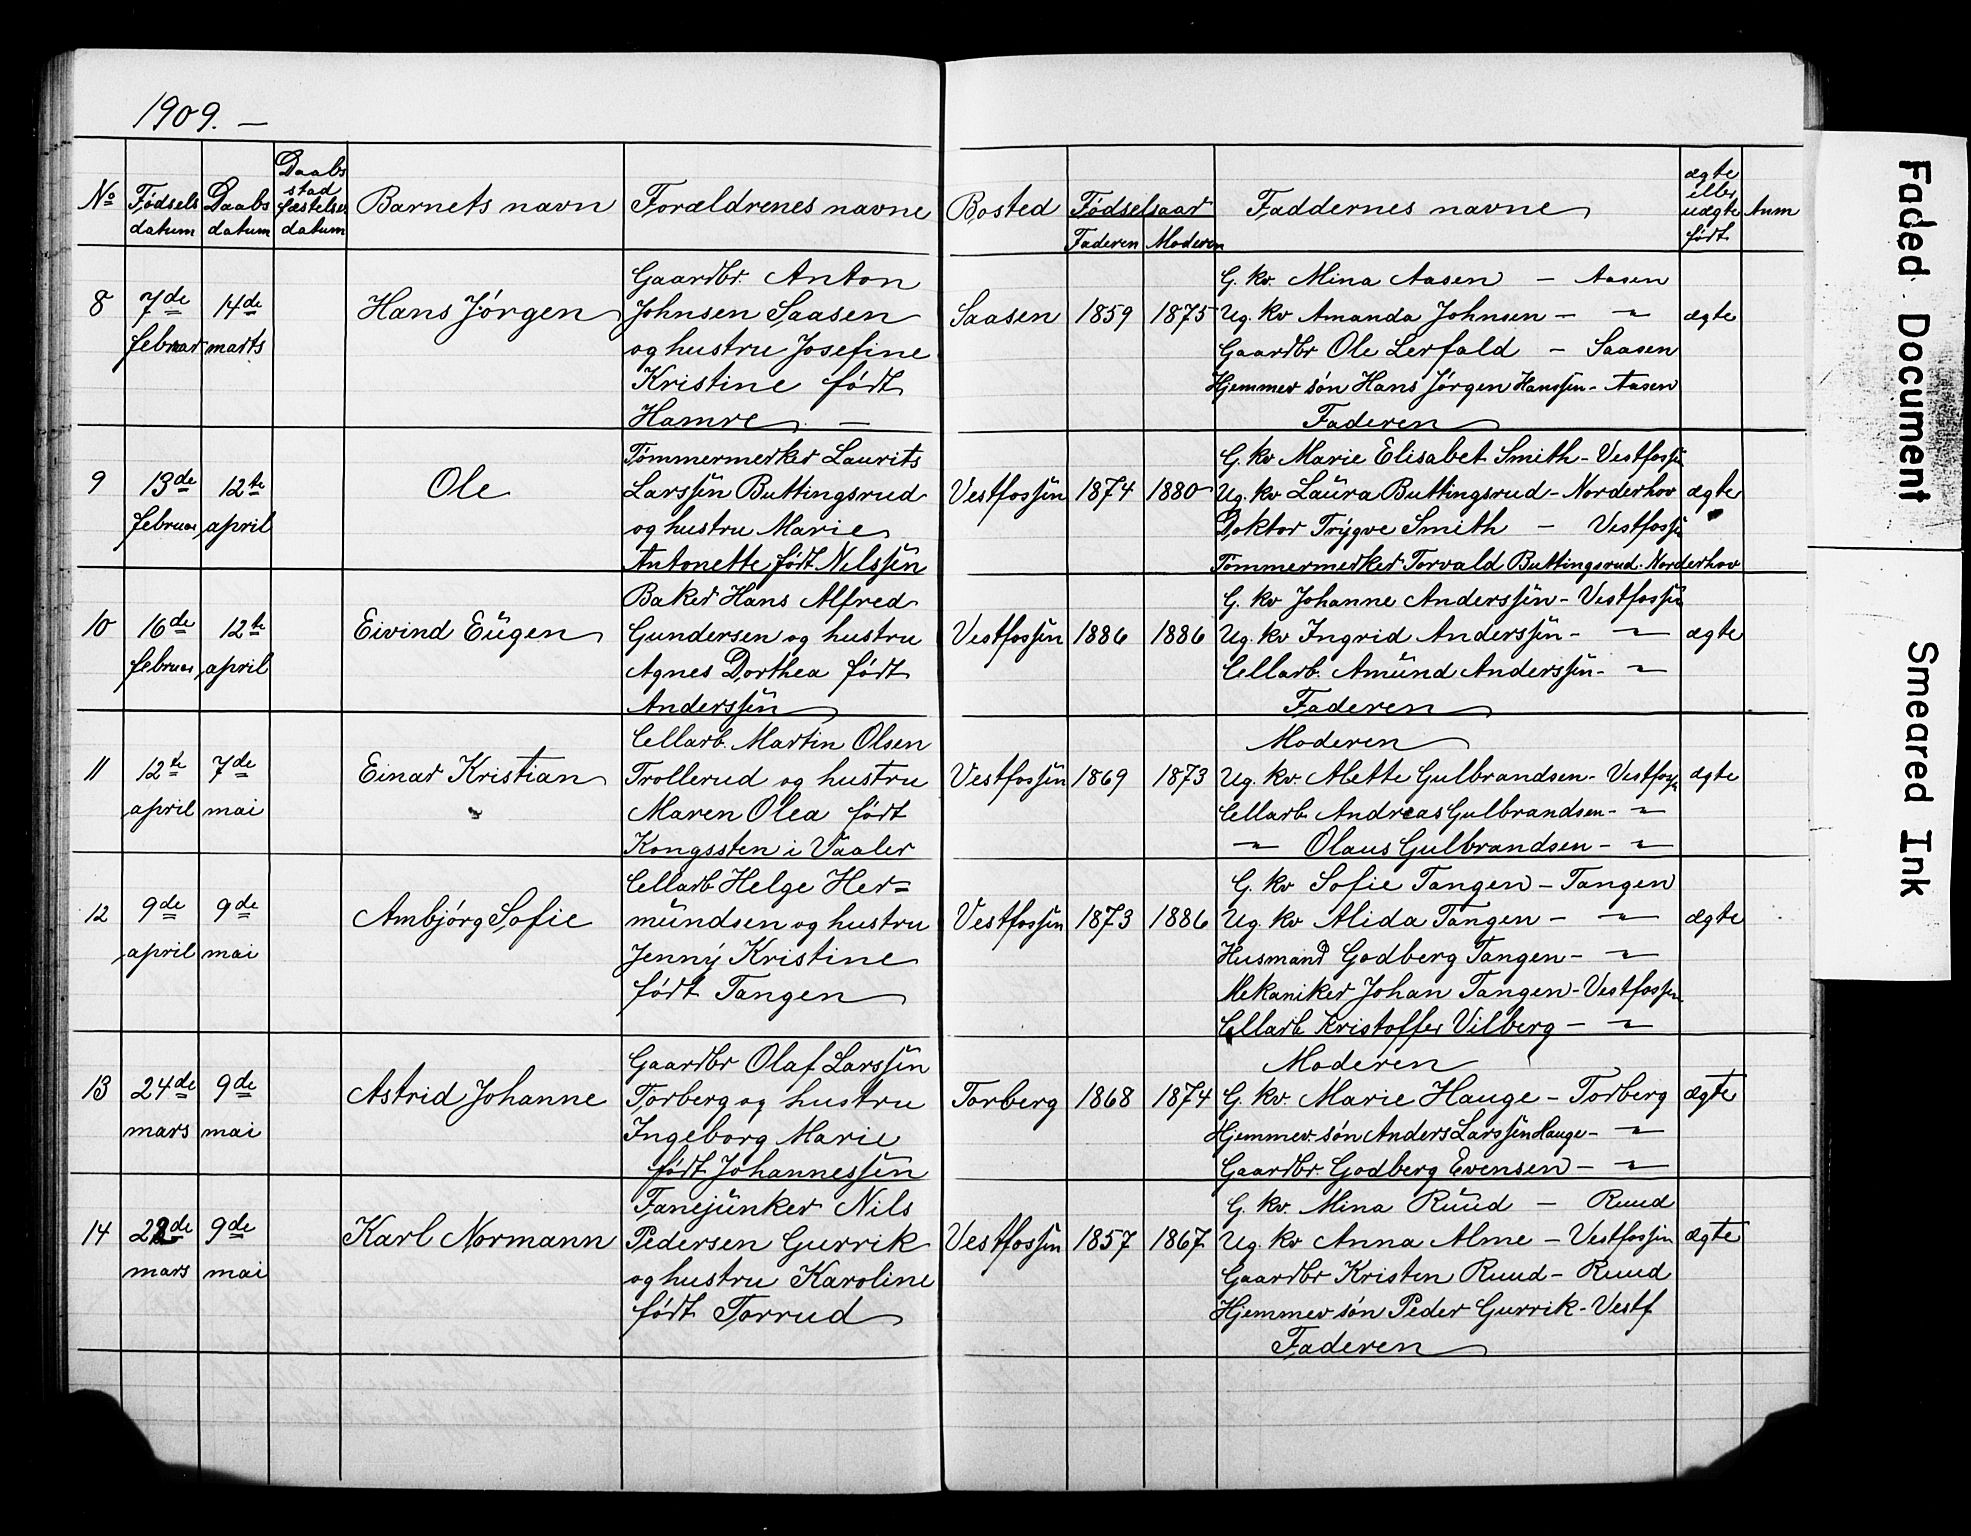 1909. —
No
Fødsels datum
Daabs datum
Daabs stad fæstelses datum
Barnets navn
Forældrenes navne
Bosted
Fødselsaar
Faderen Moderen
Faddernes navne
ægte eller uægte født
Anm
8
7de februar
14de marts
Hans Jørgen
Gaardbr. Anton
Johnsen Saasen
og hustru Josefine
Kristine født
Hamre —
Saasen 1859 1875
G. kv. Mina Aasen — Aasen
Ug. kv Amanda Johnsen — "
Gaardbr Ole Lerfald — Saasen
Hjemmev søn Hans Jørgen Hanssen - Aasen
Faderen
ægte
9
13de februar
12te april
Ole
Tømmermerker Laurits
Larssen Buttingsrud
og hustru Marie
Antonette født Nilssen
Vestfossen 1874 1880
G. kv Marie Elisabet Smith - Vestfossen
Ug. kv Laura Buttingsrud - Norderhov
Doktor Trygve Smith — Vestfossen
Tømmermerker Torvald Buttingsrud. Norderhov
ægte
10
16de februar
12te april
Eivind Eugen
Baker Hans Alfred
Gundersen og hustru
Agnes Dorthea født
Anderssen
Vestfossen 1886 1886
G. kv Johanne Anderssen - Vestfossen
Ug. kv Ingrid Anderssen - "
Cellarb. Amund Anderssen - "
Faderen
ægte
11
12te april
7de mai
Einar Kristian
Cellarb. Martin Olsen
Trollerud og hustru
Maren Olea født
Kongssten i Vaaler
Vestfossen 1869 1873
Moderen
Ug. kv. Mette Gulbrandsen - Vestfoss
Cellarb Andreas Gulbrandsen - "
" Olaus Gulbrandsen - "
ægte
12
9de april
9de mai
Ambjørg Sofie
Cellarb Helge Her=
mundsen og hustru
Jenny Kristine
født Tangen
Vestfossen 1873 1886
G. kv Sofie Tangen - Tangen
Ug. kv Alida Tangen - "
Husmand Godberg Tangen - "
Mekaniker Johan Tangen - Vestfossen
Cellarb Kristoffer Vilberg - "
ægte
13
24de mars
9de mai
Astrid Johanne
Gaardbr Olaf Larssen
Torberg og hustru
Ingeborg Marie
født Johannessen
Torberg 1868 1874
Moderen
G. kv. Marie Hauge - Torberg
Hjemmev. søn Anders Larssen Hauge - "
Gaardbr. Godberg Evensen - "
ægte
14
22de mars
9de mai
Karl Normann
Fanejunker Nils
Pedersen Gurrik
og hustru Karoline
født Torrud
Vestfossen 1857 1867
G. kv. Mina Ruud — Ruud
Ug. kv Anna Alme - Vestfossen
Gaardbr Kristen Ruud - Ruud
Hjemmev søn Peder Gurrik - Vestf
Faderen
ægte
Faded Document
Smeared Ink